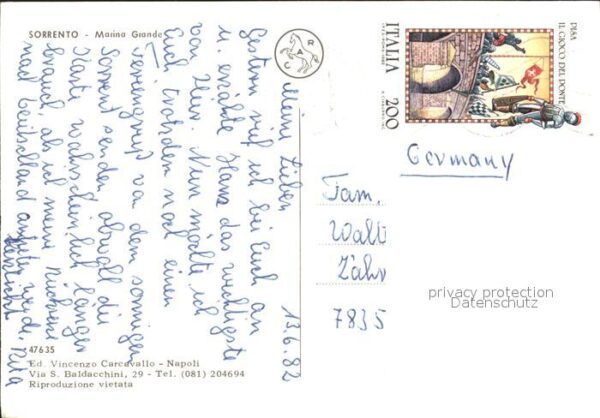 SORRENTO - Marina Grande
C A R
13.6.82
Meine Lieben
Gestern rief ich bei Euch an
u. erzählte Hans das wichtigste
von hier. Nun möchte ich
Euch trotzdem noch einen
Feriengruß von dem sonnigen
Sorrent senden, obwohl die
Karte wahrscheinlich länger
braucht, als ich meine Rückreise
nach Deutschland antreten werde.
Herzlichst Rita
47635
Ed. Vincenzo Carcavallo - Napoli
Via S. Baldacchini, 29 - Tel. (081) 204694
Riproduzione vietata
PISA
IL GIOCO DEL PONTE
ITALIA 200
Germany
Fam.
Walt
Zähr
7835
privacy protection
Datenschutz